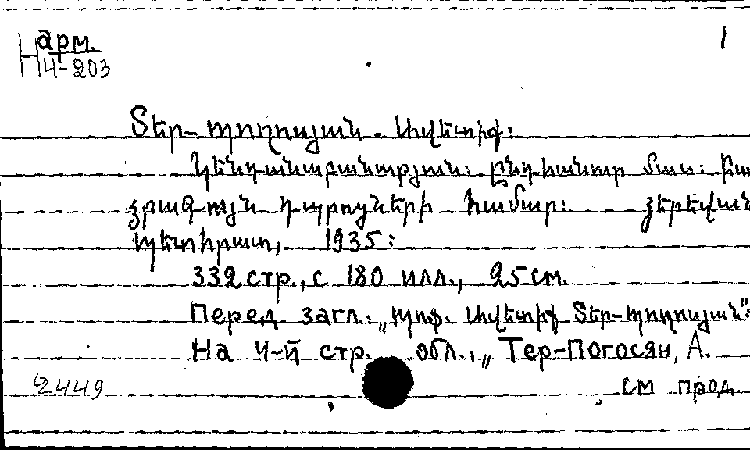 арм. 1
Н 14-203
Տեր-Պողոսյան Ավետիք։
Կենդանաբանություն։ Ընդհանուր մաս։ Բա
րձրագույն դպրոցների համար։ Յերեվան
Պետհրատ, 1935։
332 стр., с 180 илл., 25 см.
Перед загл.: „Պրոֆ. Ավետիք Տեր-Պողոսյան“.
На 4-й стр. обл.: „Тер-Погосян, А.
2449 см прод